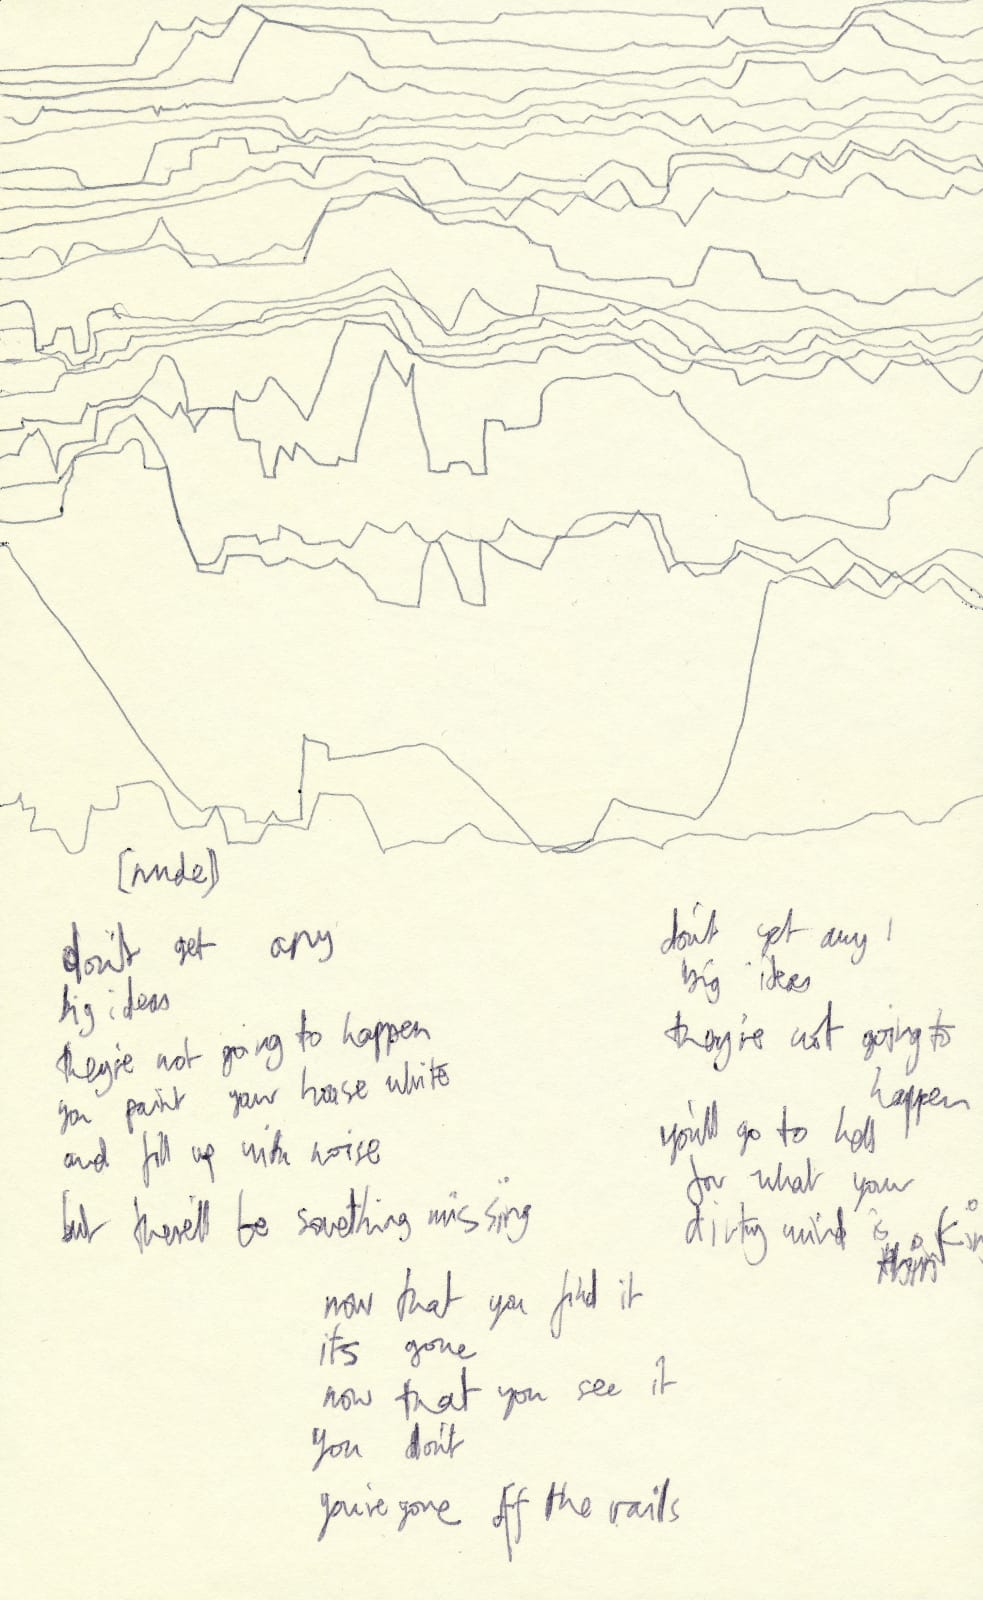 [nude]
don't get any
big ideas
they're not going to happen
you paint your house white
and fill up with noise
but there'll be something missing
don't get any !
big ideas
they're not going to
happen
you'll go to hell
for what your
dirty mind is
thin king
now that you find it
its gone
now that you see it
you don't
you're gone off the rails